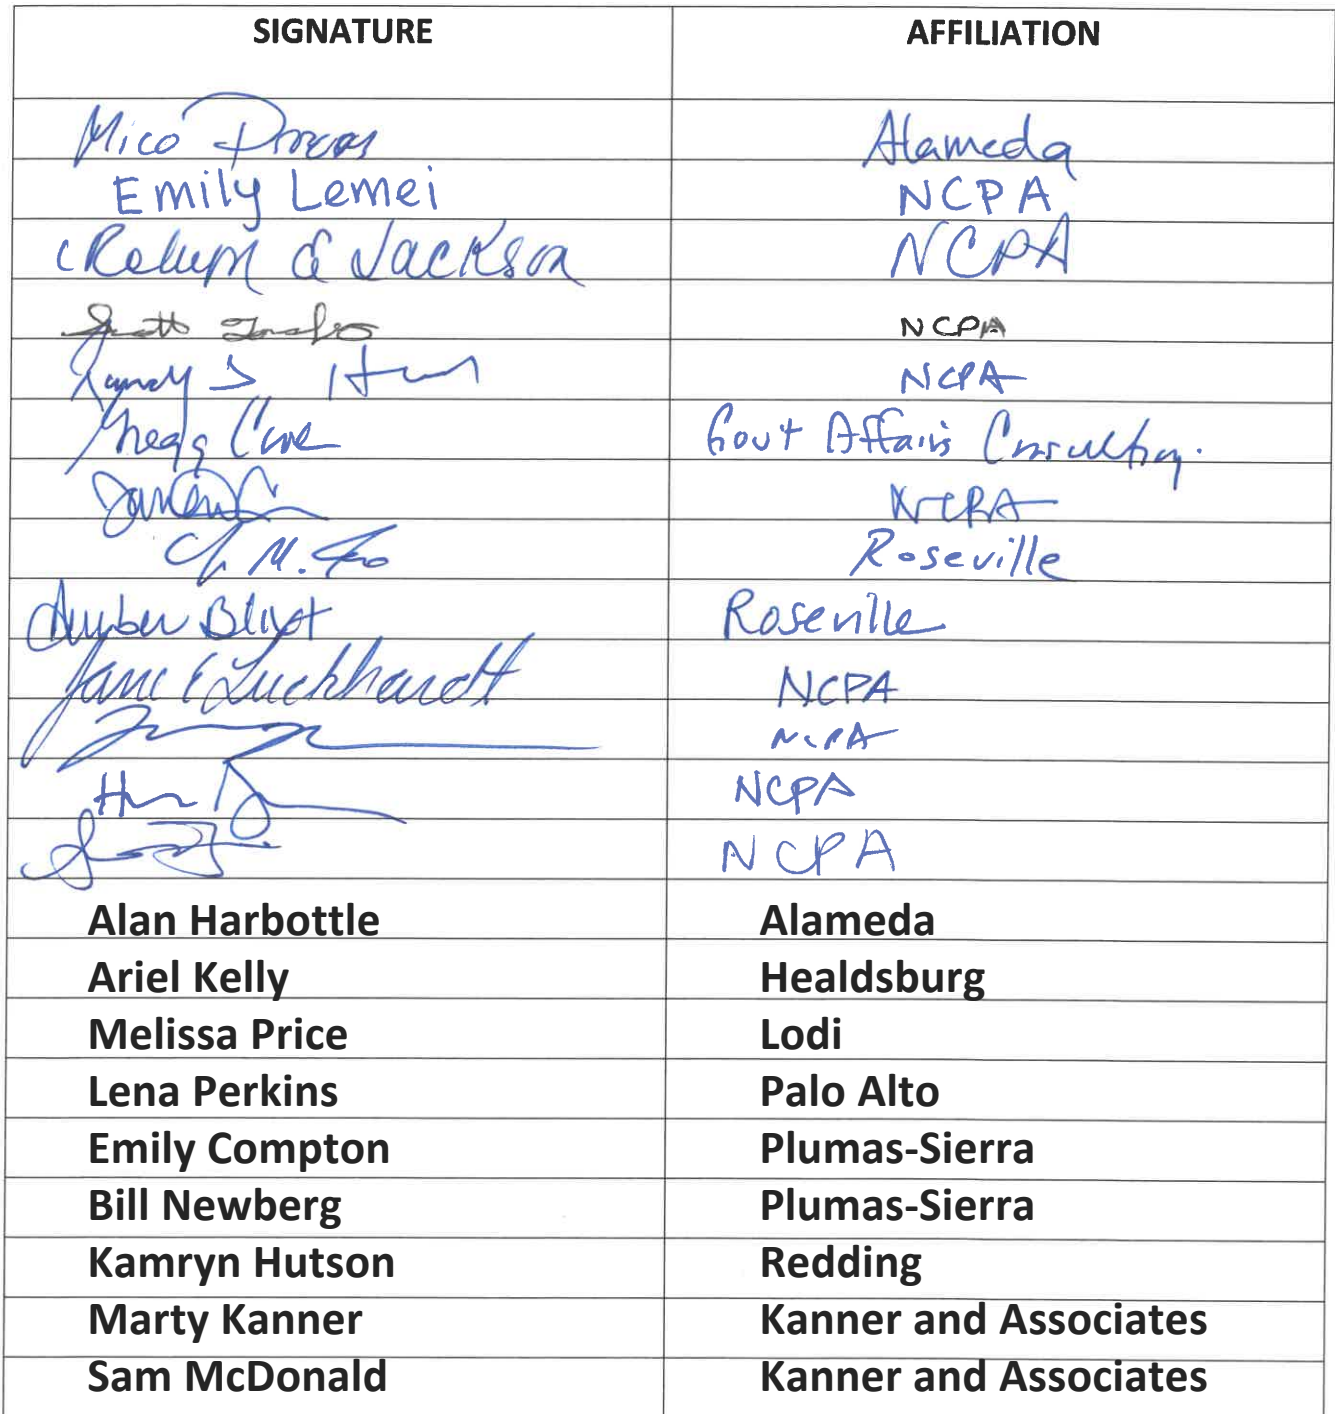 SIGNATURE AFFILIATION
Mico Alameda
Emily Lemei NCPA
Jackson NCPA
Scott NCPA
Randy S NCPA
Gregg Govt Affairs Consulting.
NCPA
M. Roseville
Amber Blixt Roseville
Jane E Luckhardt NCPA
NCPA
NCPA
NCPA
Alan Harbottle Alameda
Ariel Kelly Healdsburg
Melissa Price Lodi
Lena Perkins Palo Alto
Emily Compton Plumas-Sierra
Bill Newberg Plumas-Sierra
Kamryn Hutson Redding
Marty Kanner Kanner and Associates
Sam McDonald Kanner and Associates